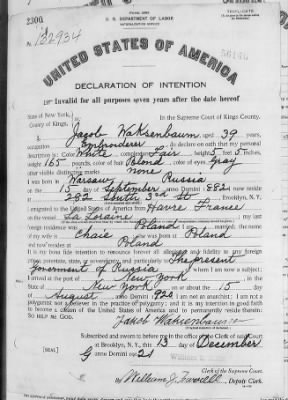 U. S. DEPARTMENT OF LABOR
NATURALIZATION SERVICE
2300.
No. 132934
UNITED STATES OF AMERICA
DECLARATION OF INTENTION
Invalid for all purposes seven years after the date hereof
State of New York,
County of Kings,
In the Supreme Court of Kings County.
I, Jacob Waksenbaum, aged 39 years,
occupation Embroiderer, do declare on oath that my personal
description is: Color White, complexion Fair, height 5 feet 5 inches,
weight 165 pounds, color of hair Blond, color of eyes Gray
other visible distinctive marks none
I was born in Warsaw, Russia
on the 15 day of September, anno Domini 1882; I now reside
at 282 South 3rd St, Brooklyn, N.Y.
I emigrated to the United States of America from Havre, France
on the vessel La Loraine; my last
foreign residence was Poland; I am married; the name
of my wife is Chaie; she was born at Poland
and now resides at Poland
It is my bona fide intention to renounce forever all allegiance and fidelity to any foreign
prince, potentate, state, or sovereignty, and particularly to The present
Government of Russia, of whom I am now a subject;
I arrived at the port of New York, in the
State of New York, on or about the 15 day
of August, anno Domini 1920; I am not an anarchist; I am not a
polygamist nor a believer in the practice of polygamy; and it is my intention in good faith
to become a citizen of the United States of America and to permanently reside therein:
SO HELP ME GOD.
Jakob Waksenbaum
Subscribed and sworn to before me in the office of the Clerk of said Court
at Brooklyn, N.Y., this 13 day of December
anno Domini 1921
[SEAL]
Clerk of the Supreme Court.
By William J. Farrell, Deputy Clerk.